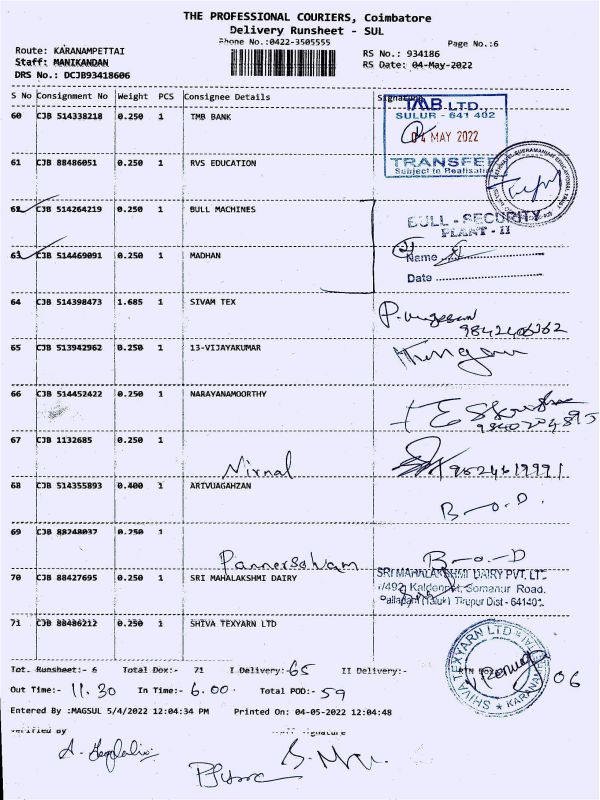 THE PROFESSIONAL COURIERS, Coimbatore
Delivery Runsheet - SUL
Phone No.:0422-3505555
Page No.:6
Route: KARANAMPETTAI
RS No.: 934186
Staff: MANIKANDAN
RS Date: 04-May-2022
DRS No.: DCJB93418606
S No Consignment No Weight PCS Consignee Details Signature
60 CJB 514338218 0.250 1 TMB BANK
TMB LTD.,
SULUR - 641 402
04 MAY 2022
TRANSFER
Subject to Realisation
61 CJB 88486051 0.250 1 RVS EDUCATION
62 CJB 514264219 0.250 1 BULL MACHINES
BULL - SECURITY
PLANT - II
63 CJB 514469091 0.250 1 MADHAN
Name
Date
64 CJB 514398473 1.685 1 SIVAM TEX
P. Murugesan
9842406262
65 CJB 513942962 0.250 1 13-VIJAYAKUMAR
66 CJB 514452422 0.250 1 NARAYANAMOORTHY
67 CJB 1132685 0.250 1
Nirnal 9524619991
68 CJB 514355893 0.400 1 ARIVUAGHZAN
B-O.D.
69 CJB 88248037 0.250 1
B-O-D
70 CJB 88427695 0.250 1 SRI MAHALAKSHMI DAIRY
SRI MAHALAKSHMI DAIRY PVT. LTD
Somanur Road.
Palladam (Taluk) Tirupur Dist - 641402.
71 CJB 88486212 0.250 1 SHIVA TEXYARN LTD
SHIVA TEXYARN LTD
Tot. Runsheet:- 6 Total Dox:- 71 I Delivery:- 65 II Delivery:- 06
Out Time:- 11.30 In Time:- 6.00 Total POD:- 59
Entered By :MAGSUL 5/4/2022 12:04:34 PM Printed On: 04-05-2022 12:04:48
Verified By Staff Signature